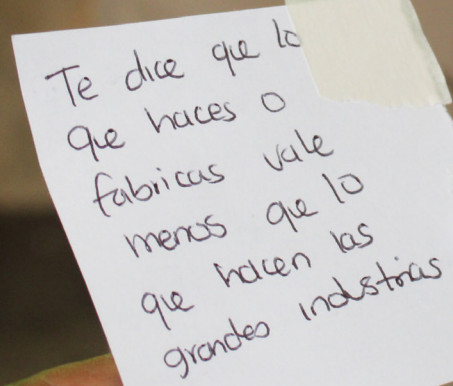 Te dice que lo
que haces o
fabricas vale
menos que lo
que hacen las
grandes industrias